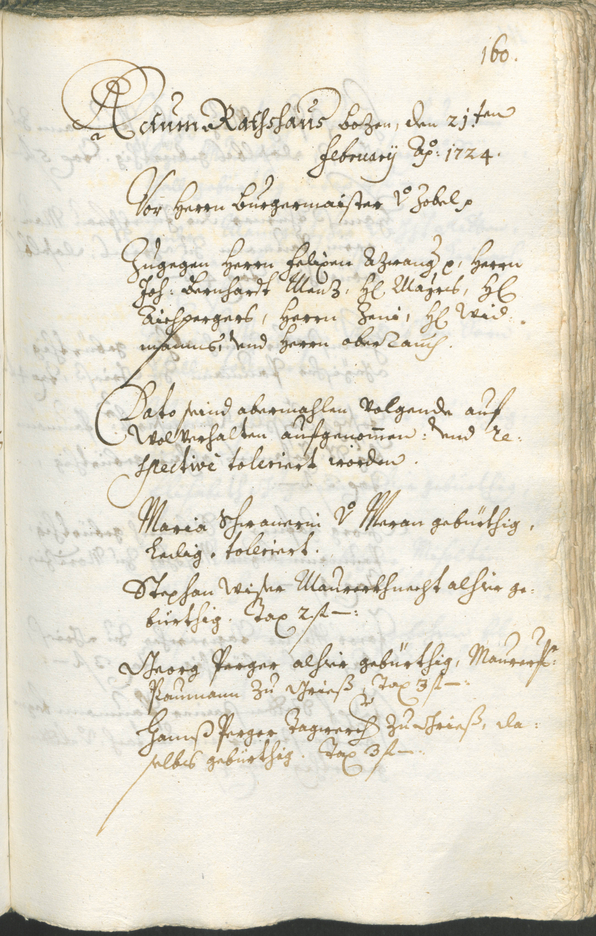 160.
Actum Rathshaus Bozen, den 21.ten
February Aõ: 1724.
Vor Herrn Burgermaister v Zobel p
Zugegen Herrn Felixen Azwang p, Herrn
Joh: Bernhardt Menz, H: Mayrls, H:
Aichpergers, Herrn Zeni, H: Wid
manns, Vnd Herrn Oberrauch.
Dato seind abermahlen volgende auf
Wolverhalten aufgenommen: Vnd re:
spective toleriert worden.
Maria v Meran gebürthig,
ledig, tolleriert.
Stephan Wiser Maurerkhnecht alhier ge:
bürthig. Tax 2 f —:
Georg Perger alhier gebürthig, Maurer
Paumann zu Grieß, Tax 3 f —:
Hannß Perger Tagwercher zu Grieß, da:
selbs gebürthig. Tax 3 f —: